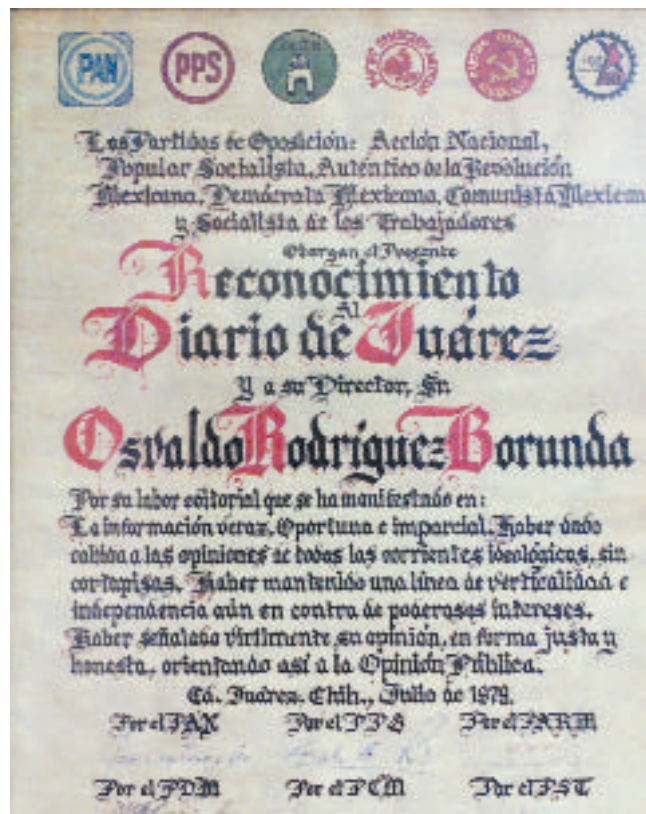 PAN
PPS
Los Partidos de Oposición: Acción Nacional,
Popular Socialista, Auténtico de la Revolución
Mexicana, Demócrata Mexicana, Comunista Mexicano
y Socialista de los Trabajadores
Otorgan el Presente
Reconocimiento
Al
Diario de Juárez
Y a su Director, Sr.
Osvaldo Rodríguez Borunda
Por su labor editorial que se ha manifestado en:
La información veraz, Oportuna e imparcial, Haber dado
cabida a las opiniones de todas las corrientes ideológicas, sin
cortapisas. Haber mantenido una línea de verticalidad e
independencia aún en contra de poderosos intereses.
Haber señalado virilmente su opinión, en forma justa y
honesta, orientando así a la Opinión Pública.
Cd. Juárez, Chih., Julio de 1979.
Por el PAN Por el PPS Por el PARM
Por el PDM Por el PCM Por el PST